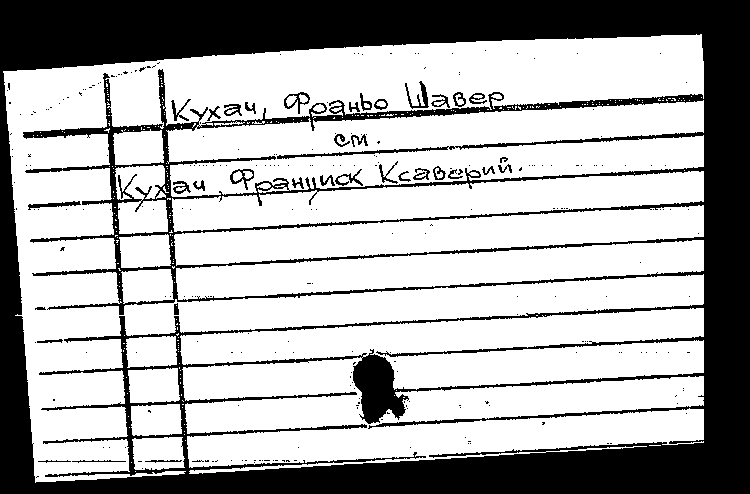 Кухач, Франьо Шавер
см.
Кухач, Франциск Ксаверий.